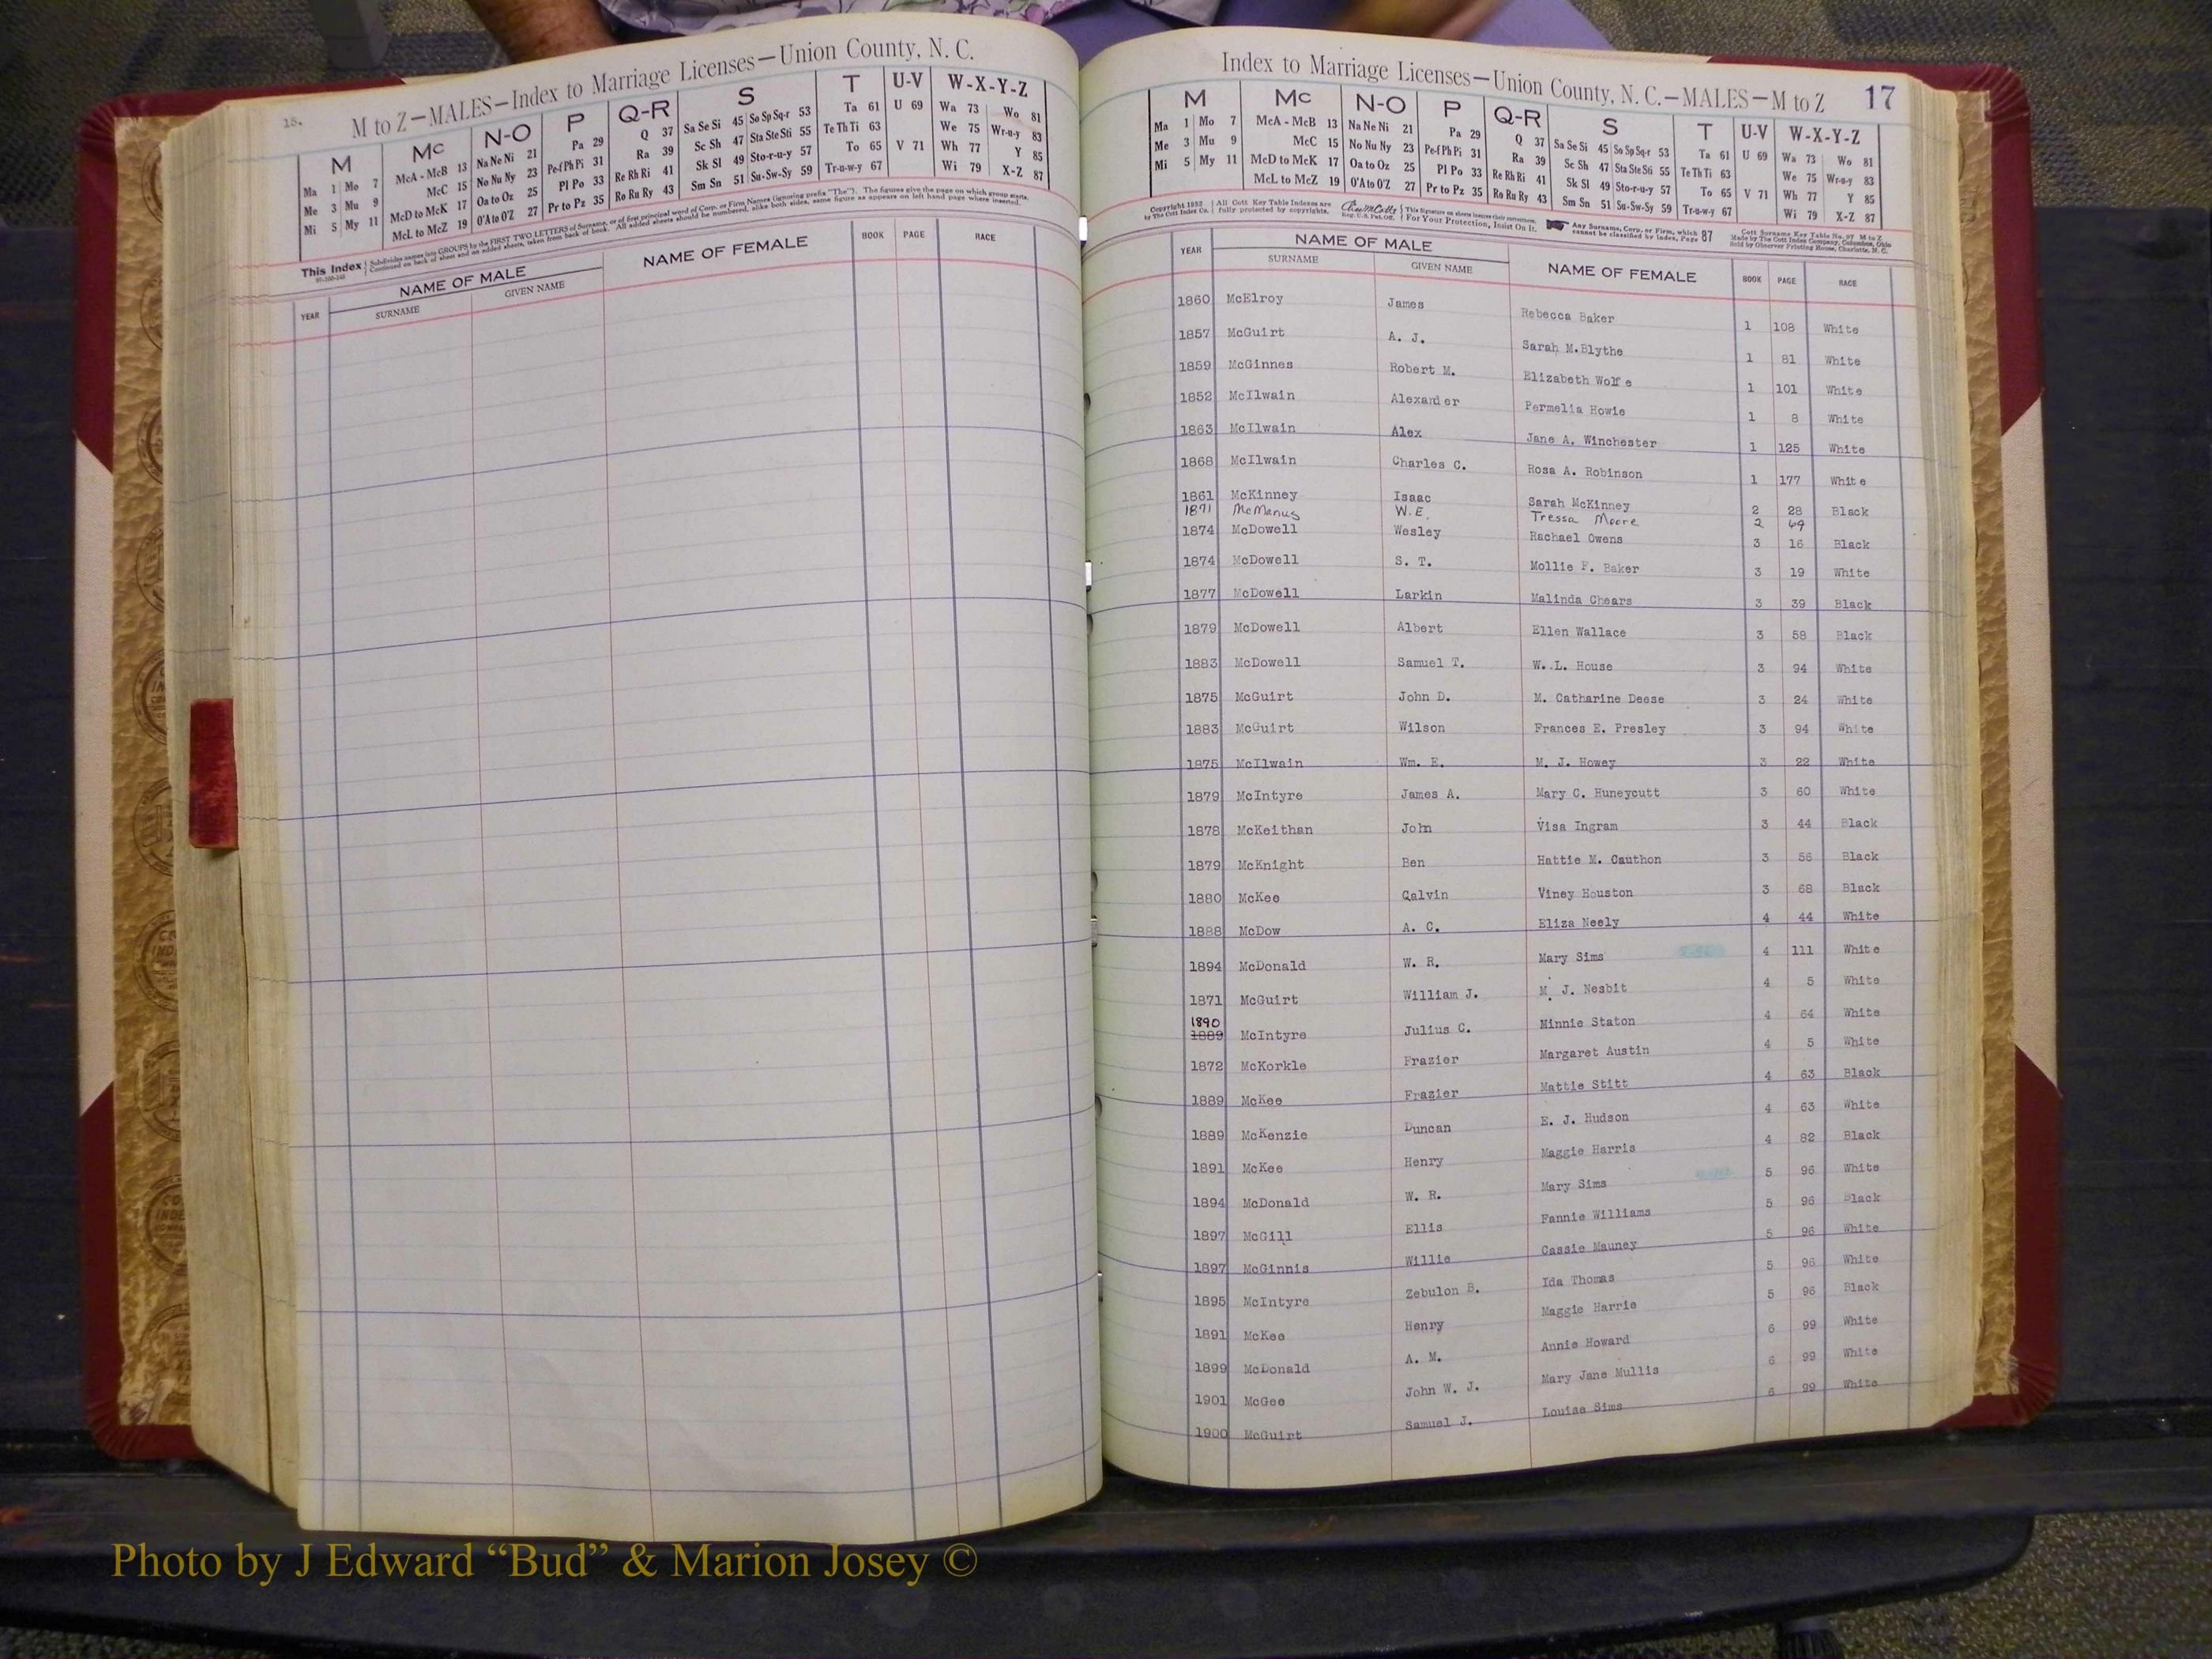 18.
M to Z—MALES—Index to Marriage Licenses—Union County, N. C.
M Mc N-O P Q-R S T U-V W-X-Y-Z
Ma 1 Mo 7 McA - McB 13 Na Ne Ni 21 Pa 29 Q 37 Sa Se Si 45 So Sp Sq-r 53 Ta 61 U 69 Wa 73 Wo 81
Me 3 Mu 9 McC 15 No Nu Ny 23 Pe-f Ph Pi 31 Ra 39 Sc Sh 47 Sta Ste Sti 55 Te Th Ti 63 We 75 Wr-u-y 83
Mi 5 My 11 McD to McK 17 Oa to Oz 25 Pl Po 33 Re Rh Ri 41 Sk Sl 49 Sto-r-u-y 57 To 65 V 71 Wh 77 Y 85
McL to McZ 19 O'A to O'Z 27 Pr to Pz 35 Ro Ru Ry 43 Sm Sn 51 Su-Sw-Sy 59 Tr-u-w-y 67 Wi 79 X-Z 87
This Index Subdivides names into GROUPS by the FIRST TWO LETTERS of Surname, or of first principal word of Corp. or Firm Names (ignoring prefix "The"). The figures give the page on which group starts.
Continued on back of sheet and on added sheets, taken from back of book. All added sheets should be numbered, alike both sides, same figure as appears on left hand page where inserted.
YEAR NAME OF MALE SURNAME GIVEN NAME NAME OF FEMALE BOOK PAGE RACE
Index to Marriage Licenses—Union County, N. C.—MALES—M to Z 17
M Mc N-O P Q-R S T U-V W-X-Y-Z
Ma 1 Mo 7 McA - McB 13 Na Ne Ni 21 Pa 29 Q 37 Sa Se Si 45 So Sp Sq-r 53 Ta 61 U 69 Wa 73 Wo 81
Me 3 Mu 9 McC 15 No Nu Ny 23 Pe-f Ph Pi 31 Ra 39 Sc Sh 47 Sta Ste Sti 55 Te Th Ti 63 We 75 Wr-u-y 83
Mi 5 My 11 McD to McK 17 Oa to Oz 25 Pl Po 33 Re Rh Ri 41 Sk Sl 49 Sto-r-u-y 57 To 65 V 71 Wh 77 Y 85
McL to McZ 19 O'A to O'Z 27 Pr to Pz 35 Ro Ru Ry 43 Sm Sn 51 Su-Sw-Sy 59 Tr-u-w-y 67 Wi 79 X-Z 87
Copyright 1952 by The Cott Index Co. All Cott Key Table Indexes are fully protected by copyrights. Reg. U.S. Pat. Off. For Your Protection, Insist On It. Any Surname, Corp. or Firm, which cannot be classified by index, Page 87
Cott Surname Key Table No. 97 M to Z
Made by The Cott Index Company, Columbus, Ohio
Sold by Observer Printing House, Charlotte, N. C.
YEAR NAME OF MALE SURNAME GIVEN NAME NAME OF FEMALE BOOK PAGE RACE
1860 McElroy James Rebecca Baker 1 108 White
1857 McGuirt A. J. Sarah M.Blythe 1 81 White
1859 McGinnes Robert M. Elizabeth Wolfe 1 101 White
1852 McIlwain Alexander Permelia Howie 1 8 White
1863 McIlwain Alex Jane A. Winchester 1 125 White
1868 McIlwain Charles C. Rosa A. Robinson 1 177 White
1861 McKinney Isaac Sarah McKinney 2 28 Black
1871 McManus W.E. Tressa Moore 2 69
1874 McDowell Wesley Rachael Owens 3 16 Black
1874 McDowell S. T. Mollie F. Baker 3 19 White
1877 McDowell Larkin Malinda Chears 3 39 Black
1879 McDowell Albert Ellen Wallace 3 58 Black
1883 McDowell Samuel T. W. L. House 3 94 White
1875 McGuirt John D. M. Catharine Deese 3 24 White
1883 McGuirt Wilson Frances E. Presley 3 94 White
1875 McIlwain Wm. E. M. J. Howey 3 22 White
1879 McIntyre James A. Mary C. Huneycutt 3 60 White
1878 McKeithan John Visa Ingram 3 44 Black
1879 McKnight Ben Hattie M. Cauthon 3 56 Black
1880 McKee Calvin Viney Houston 3 68 Black
1888 McDow A. C. Eliza Neely 4 44 White
1894 McDonald W. R. Mary Sims 4 111 White
1871 McGuirt William J. M. J. Nesbit 4 5 White
1890
1889 McIntyre Julius C. Minnie Staton 4 64 White
1872 McKorkle Frazier Margaret Austin 4 5 White
1889 McKee Frazier Mattie Stitt 4 63 Black
1889 McKenzie Duncan E. J. Hudson 4 63 White
1891 McKee Henry Maggie Harris 4 82 Black
1894 McDonald W. R. Mary Sims 5 96 White
1897 McGill Ellis Fannie Williams 5 96 Black
1897 McGinnis Willie Cassie Mauney 5 96 White
1895 McIntyre Zebulon B. Ida Thomas 5 96 White
1891 McKee Henry Maggie Harris 5 96 Black
1899 McDonald A. M. Annie Howard 6 99 White
1901 McGee John W. J. Mary Jane Mullis 6 99 White
1900 McGuirt Samuel J. Louise Sims 6 99 White
Photo by J Edward “Bud” & Marion Josey ©